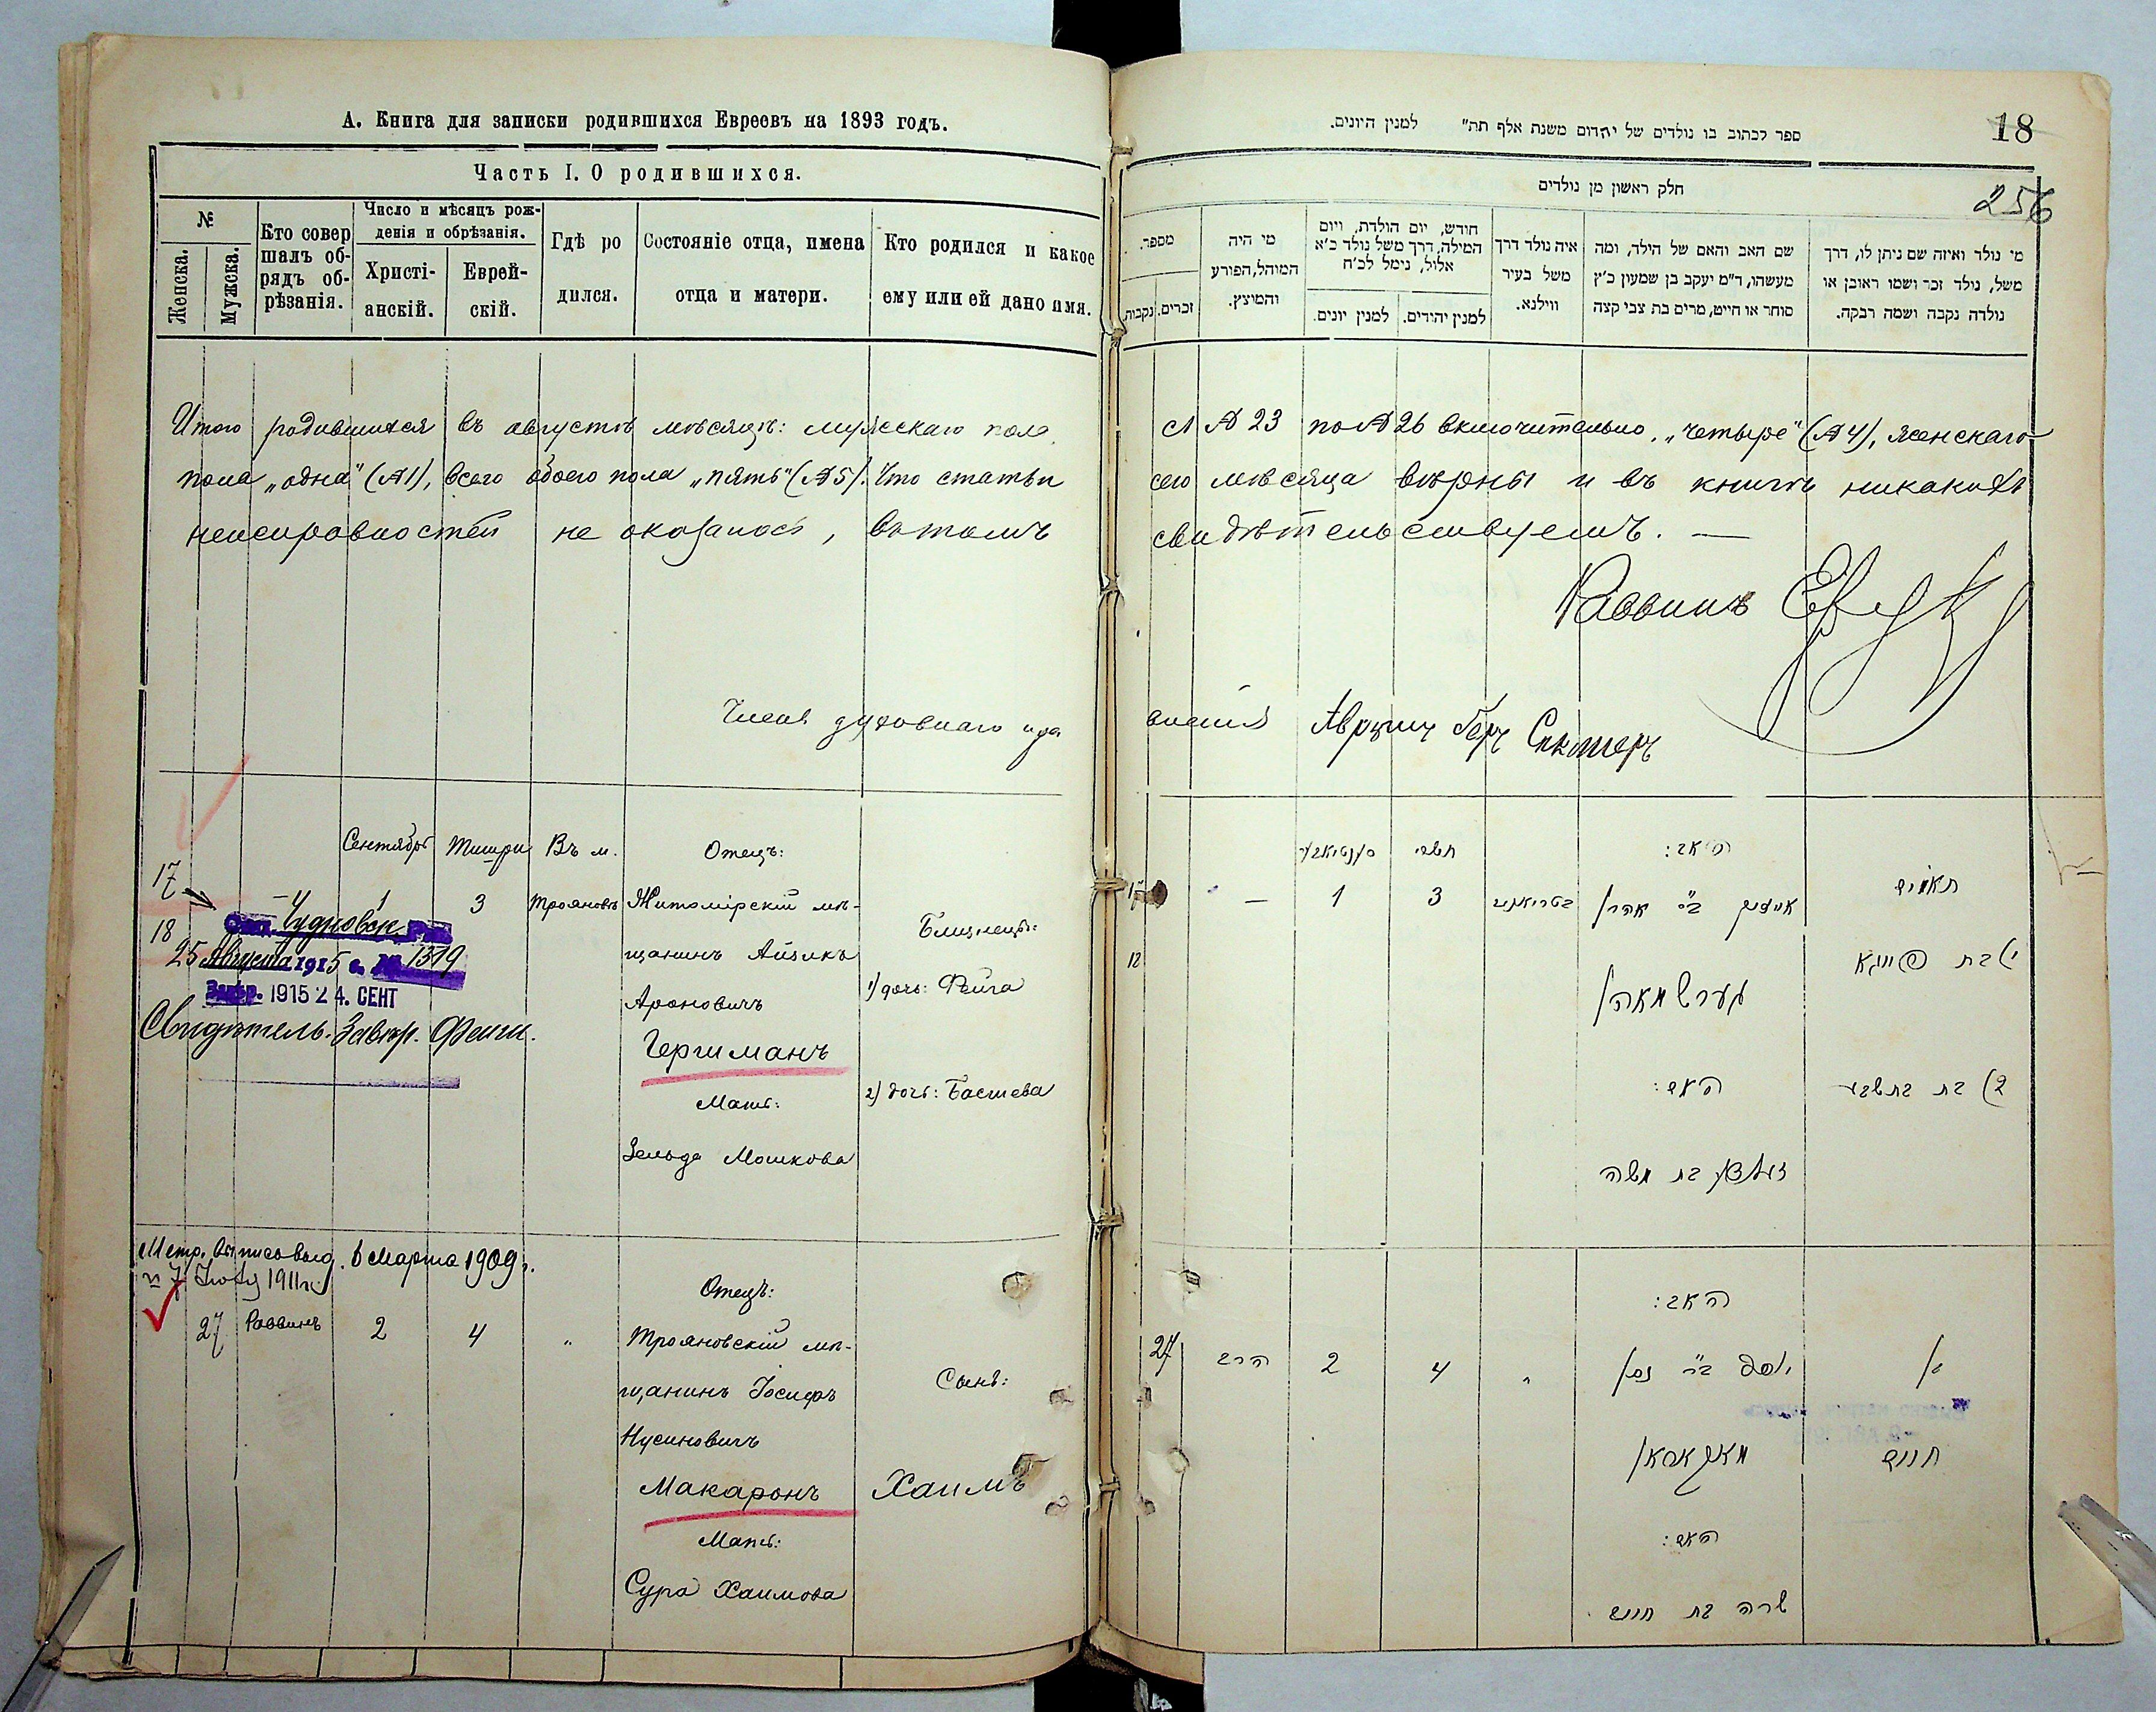 А. Книга для записки родившихся Евреевъ на 1893 годъ.
Часть I. О родившихся.
№
Женска.
Мужска.
Кто совер
шалъ об-
рядъ об-
рѣзанія.
Число и мѣсяцъ рож-
денія и обрѣзанія.
Христі-
анскій.
Еврей-
скій.
Гдѣ ро
дился.
Состояніе отца, имена
отца и матери.
Кто родился и какое
ему или ей дано имя.
Итого родившихся въ августѣ мѣсяцѣ: мужскаго пола
пола „одна" (№1), всего обоего пола „пять" (№5). Что статьи
неисправностей не оказалось, въ томъ
Члены духовнаго пра
17
18
Сентябрь
Тишри
Въ м.
Отецъ:
1
3
Трояновъ
Житомірскій мѣ-
щанинъ Айзикъ
Ароновичъ
Гершманъ
Мать:
Зельда Мошкова
Близнецы:
1) дочь: Фейга
2) дочь: Басшева
Чудновск.
25 Августа 1915 г. № 1319
1915 24. СЕНТ
Свидѣтель. Завѣр. Фейги.
Метр. выпись выд. 6 Марта 1909 г.
и 7 1911 г.
27
Раввинъ
2
4
"
Отецъ:
Трояновскій мѣ-
щанинъ Іосифъ
Нусиновичъ
Макаронъ
Мать:
Сура Хаимова
Сынъ:
Хаимъ
18
256
ספר לכתוב בו נולדים של יהדום משנת אלף תת״ למנין היונים.
חלק ראשון מן נולדים
מספר.
נקבות.
זכרים.
מי היה
המוהל,הפורע
והמוצץ.
חודש, יום הולדת, ויום
המילה, דרך משל נולד כ׳א
אלול, נימל לכ׳ח
למנין יונים.
למנין יהודים.
איה נולד דרך
משל בעיר
ווילנא.
שם האב והאם של הילד, ומה
מעשהו, ד״מ יעקב בן שמעון כ׳ץ
סוחר או חייט, מרים בת צבי קצה
מי נולד ואיזה שם ניתן לו, דרך
משל, נולד זכר ושמו ראובן או
נולדה נקבה ושמה רבקה.
съ № 23 по № 26 включительно, „четыре" (№4), женскаго
сего мѣсяца вѣрны и въ книгѣ никакихъ
свидѣтельствуемъ. —
Раввинъ
вленія
17
12
—
1
תשרי
3
האב:
אייזיק ב״ר אהרן
גערשמאהן
האם:
זעלדע בת משה
תאומים
1) בת פייגא
2) בת בתשבע
27
הרב
2
4
"
האב:
יוסף ב״ר נסן
מאקאראן
האם:
שרה בת חיים
בן
חיים